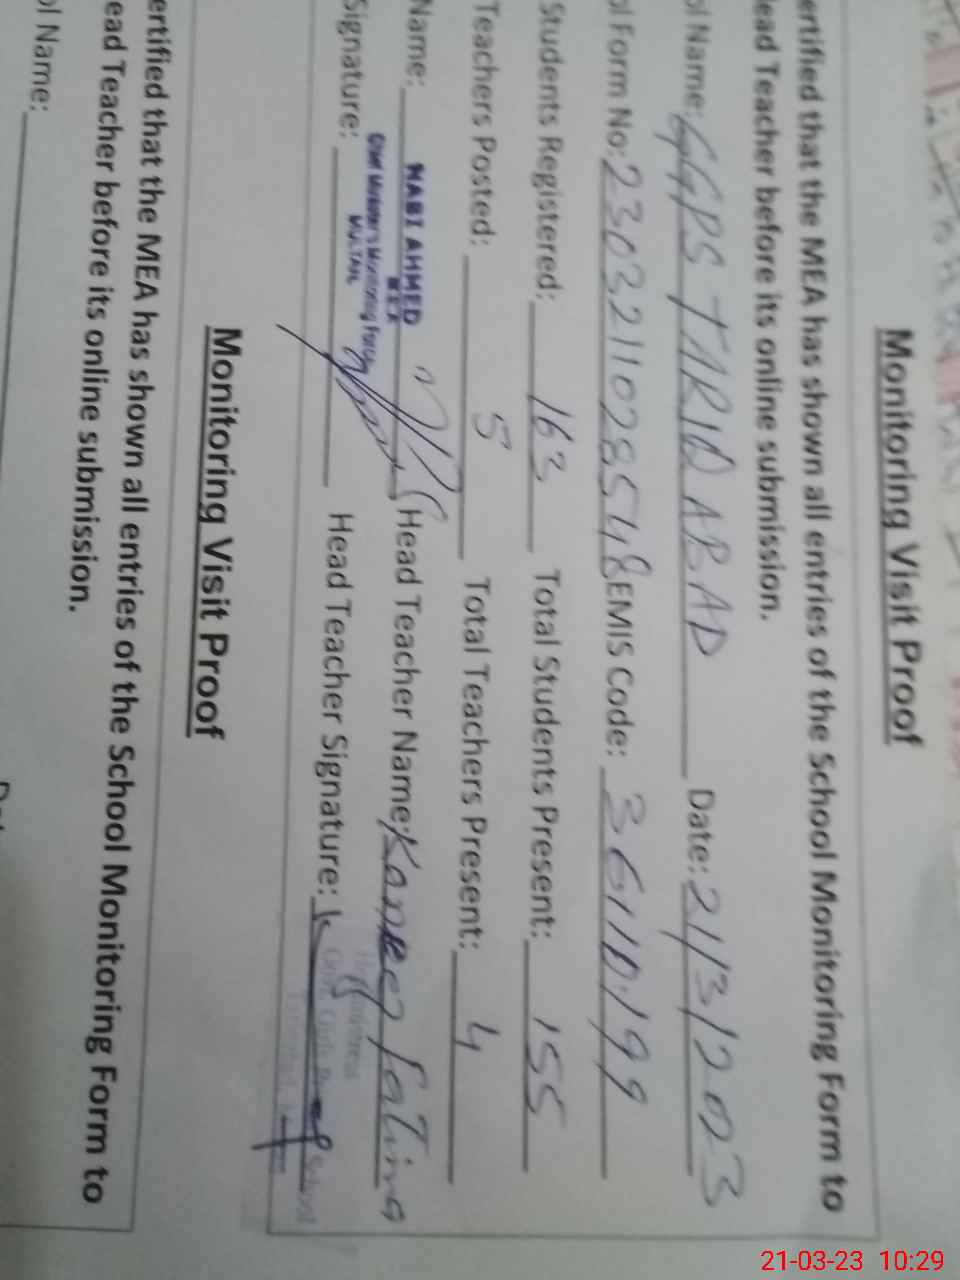 Monitoring Visit Proof
ertified that the MEA has shown all entries of the School Monitoring Form to
lead Teacher before its online submission.
ol Name: GGPS TARIQ ABAD Date: 21/3/2023
ol Form No: 230321102854 8 EMIS Code: 36110199
Students Registered: 163 Total Students Present: 155
Teachers Posted: 5 Total Teachers Present: 4
Name: NABI AHMED Head Teacher Name: Kaneez fatima
MEA
Chief Minister's Monitoring Force
MULTAN
Signature: Head Teacher Signature:
Monitoring Visit Proof
ertified that the MEA has shown all entries of the School Monitoring Form to
ead Teacher before its online submission.
ol Name:
21-03-23 10:29